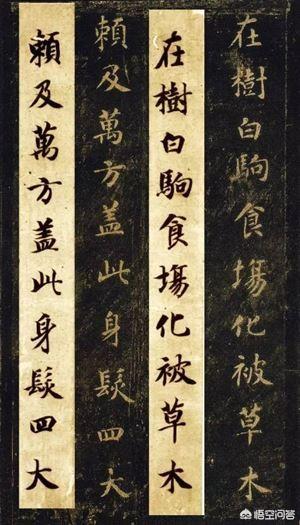 在樹白駒食場化被草木
在樹白駒食場化被草木
賴及萬方盖此身髮四大
賴及萬方盖此身髮四大
悟空问答